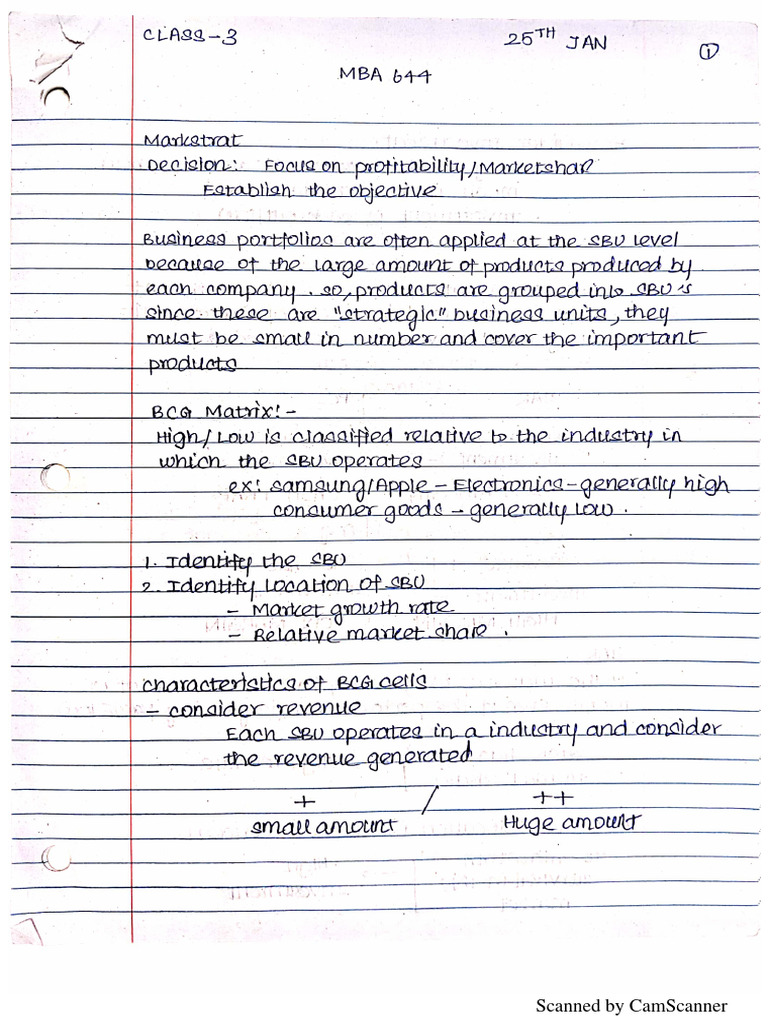 CLASS-3
25TH JAN
1
MBA 644
Markstrat
Decision: Focus on profitability/Marketshare
Establish the objective
Business portfolios are often applied at the SBU level
because of the large amount of products produced by
each company. so, products are grouped into SBU's
since these are "strategic" business units, they
must be small in number and cover the important
products
BCG Matrix:-
High/Low is classified relative to the industry in
which the SBU operates
ex: Samsung/Apple - Electronics - generally high
consumer goods - generally low.
1. Identify the SBU
2. Identify location of SBU
- Market growth rate
- Relative market share.
characteristics of BCG cells
- consider revenue
Each SBU operates in a industry and consider
the revenue generated
+ / ++
small amount Huge amount
Scanned by CamScanner